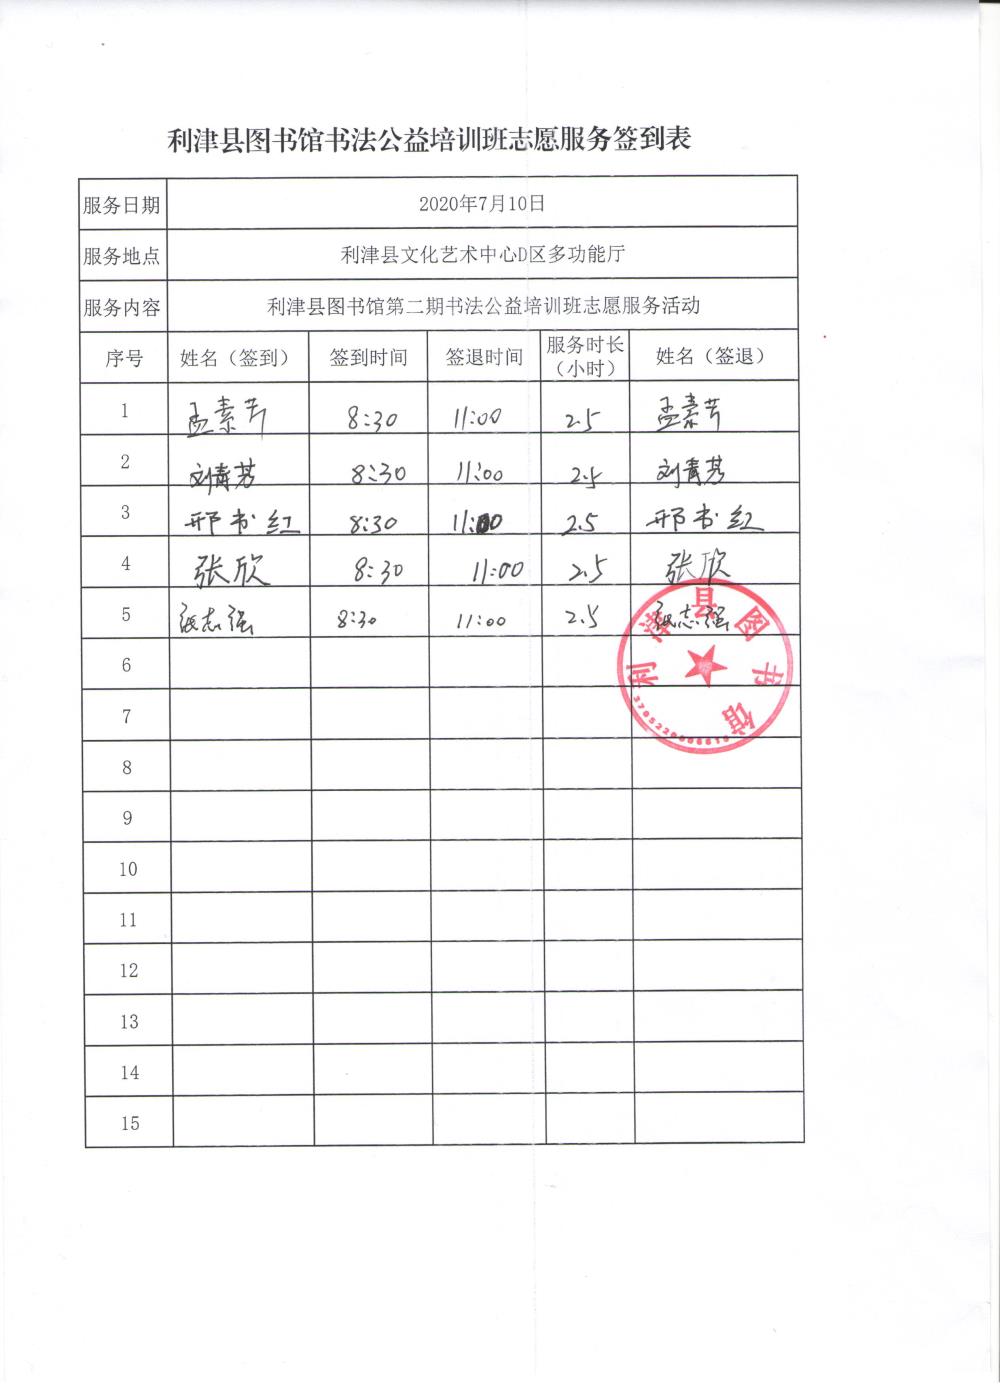 利津县图书馆书法公益培训班志愿服务签到表
服务日期 2020年7月10日
服务地点 利津县文化艺术中心D区多功能厅
服务内容 利津县图书馆第二期书法公益培训班志愿服务活动
序号 姓名（签到） 签到时间 签退时间 服务时长（小时） 姓名（签退）
1 孟素芹 8:30 11:00 2.5 孟素芹
2 刘青芳 8:30 11:00 2.5 刘青芳
3 邢书红 8:30 11:00 2.5 邢书红
4 张欣 8:30 11:00 2.5 张欣
5 张志强 8:30 11:00 2.5 张志强
6
7
8
9
10
11
12
13
14
15
利津县图书馆